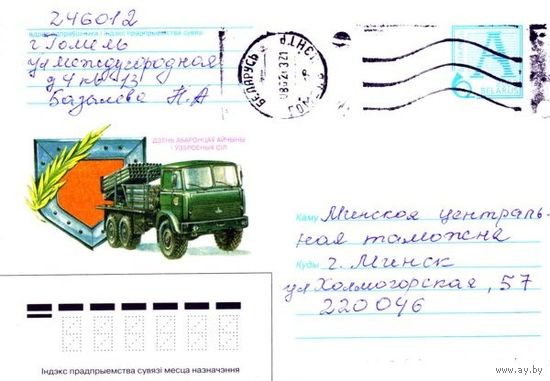 246012
адрас адпраўшчыка і індэкс прадпрыемства сувязі
г Гомель
ул Междугородная
д 4 кв 13
Базалева Н.А
БЕЛАРУСЬ
A
BELARUS
ДЗЕНЬ АБАРОНЦАЎ АЙЧЫНЫ
І УЗБРОЕНЫХ СІЛ
Каму Минская централь-
ная таможня
Куды г. Минск
ул Холмогорская, 57
220046
Індэкс прадпрыемства сувязі месца назначэння
https://www.ay.by